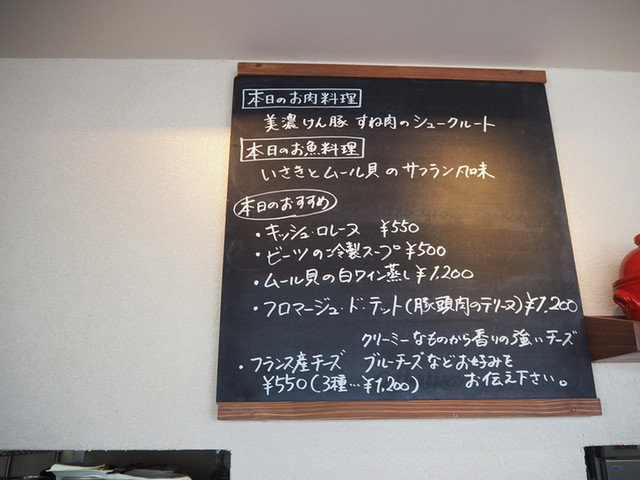 本日のお肉料理
美濃けん豚 すね肉のシュークルート
本日のお魚料理
いさきとムール貝のサフラン風味
本日のおすすめ
・キッシュ・ロレーヌ ¥550
・ビーツの冷製スープ ¥500
・ムール貝の白ワイン蒸し ¥1,200
・フロマージュ・ド・テット(豚頭肉のテリーヌ) ¥1,200
クリーミーなものから香りの強いチーズ
・フランス産チーズ ブルーチーズなどお好みを
¥550(3種…¥1,200) お伝え下さい。